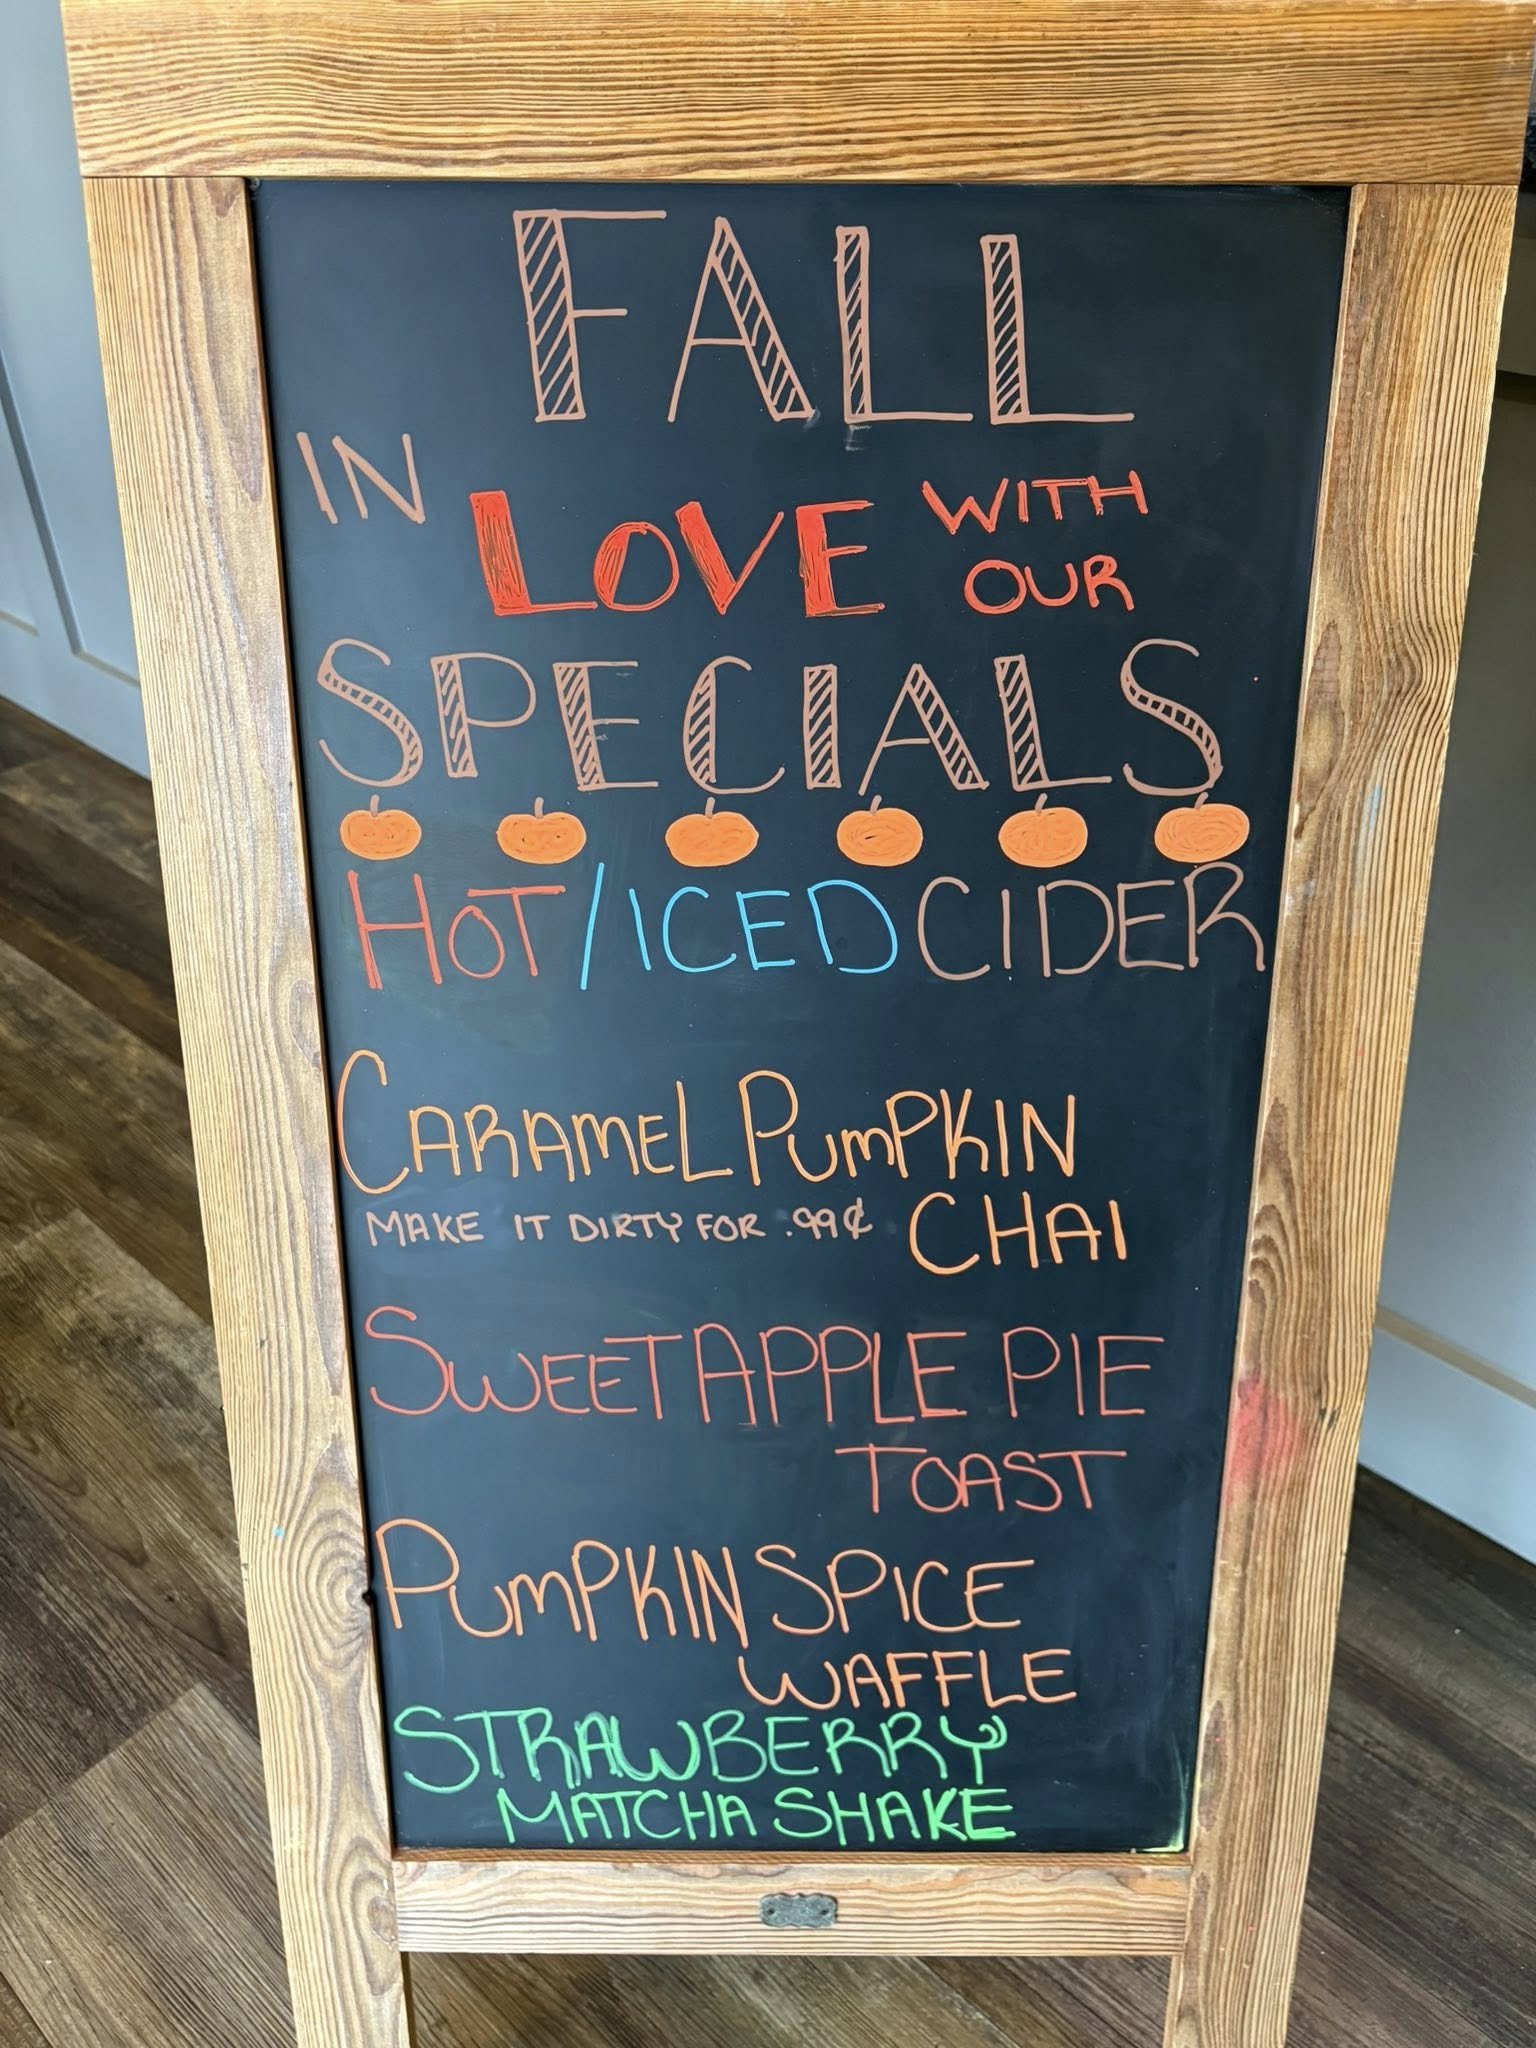 FALL
IN LOVE WITH
OUR
SPECIALS
HOT/ICED CIDER
CARAMEL PUMPKIN
MAKE IT DIRTY FOR .99¢ CHAI
SWEET APPLE PIE
TOAST
PUMPKIN SPICE
WAFFLE
STRAWBERRY
MATCHA SHAKE